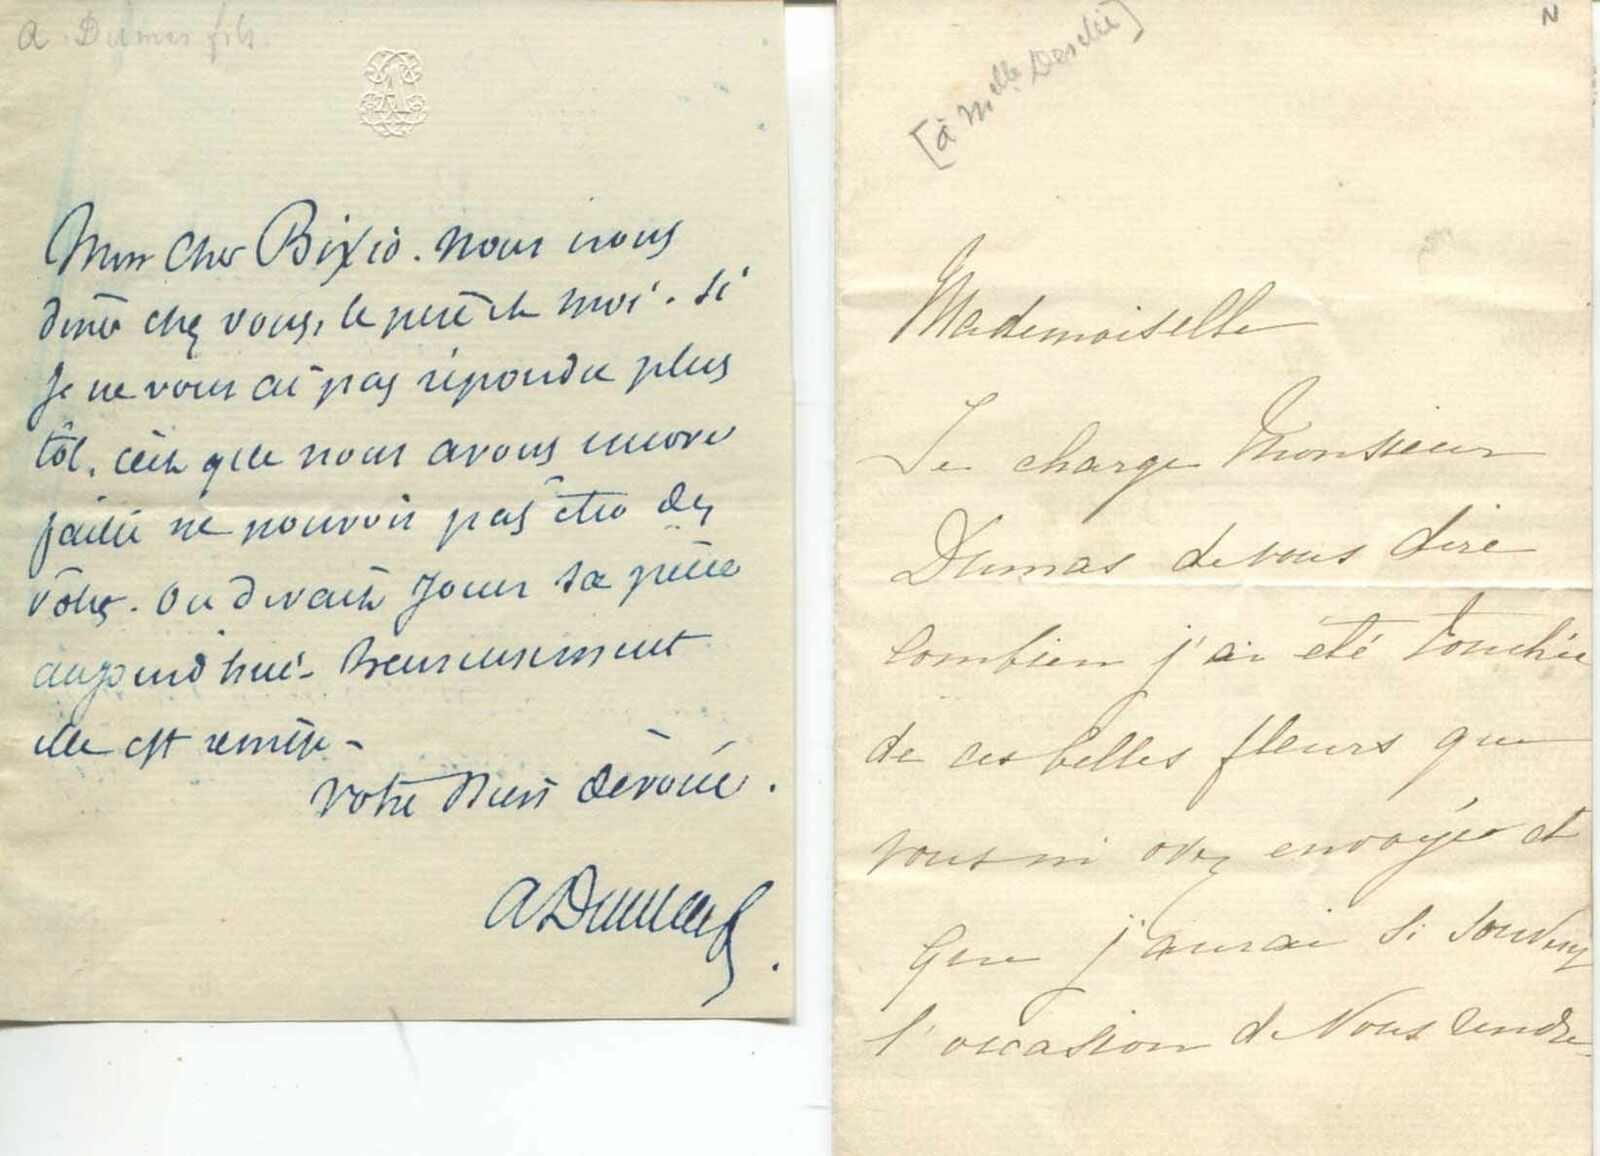 A. Dumas fils.
Mon cher Bixio. nous irons
diner chez vous, le père et moi. Si
je ne vous ai pas répondu plus
tôt, c'est que nous avons encore
failli ne pouvoir pas être des
vôtres. On devait jouer sa pièce
aujourd'hui. heureusement
elle est remise -
votre bien dévoué.
A Dumas f.
[à Mlle Desclée]
N
Mademoiselle
Je charge Monsieur
Dumas de vous dire
combien j'ai été touchée
de ces belles fleurs que
vous m'avez envoyées et
que j'aurai si souvent
l'occasion de vous rendre